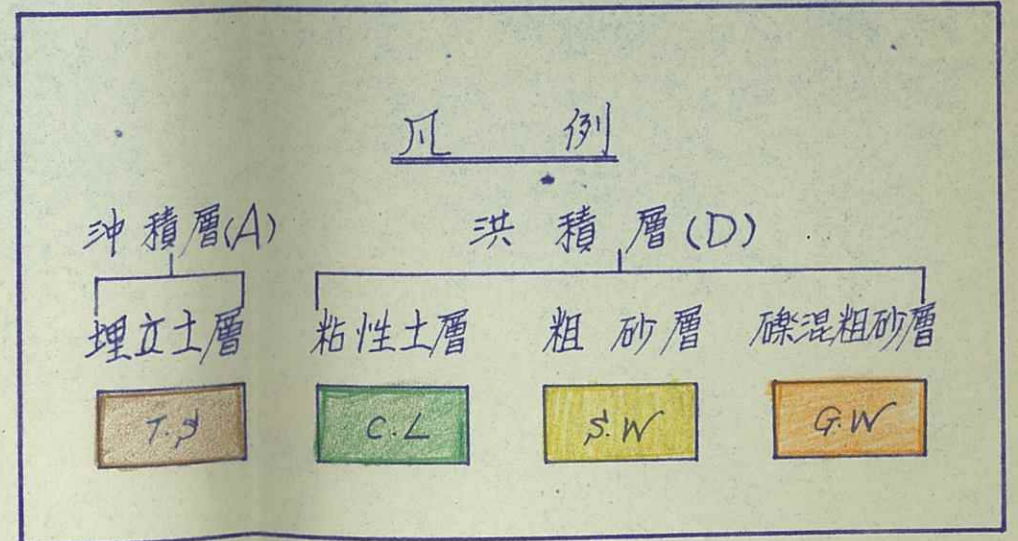 凡 例
沖積層(A) 洪積層(D)
埋立土層 粘性土層 粗砂層 礫混粗砂層
T.S C.L S.W G.W